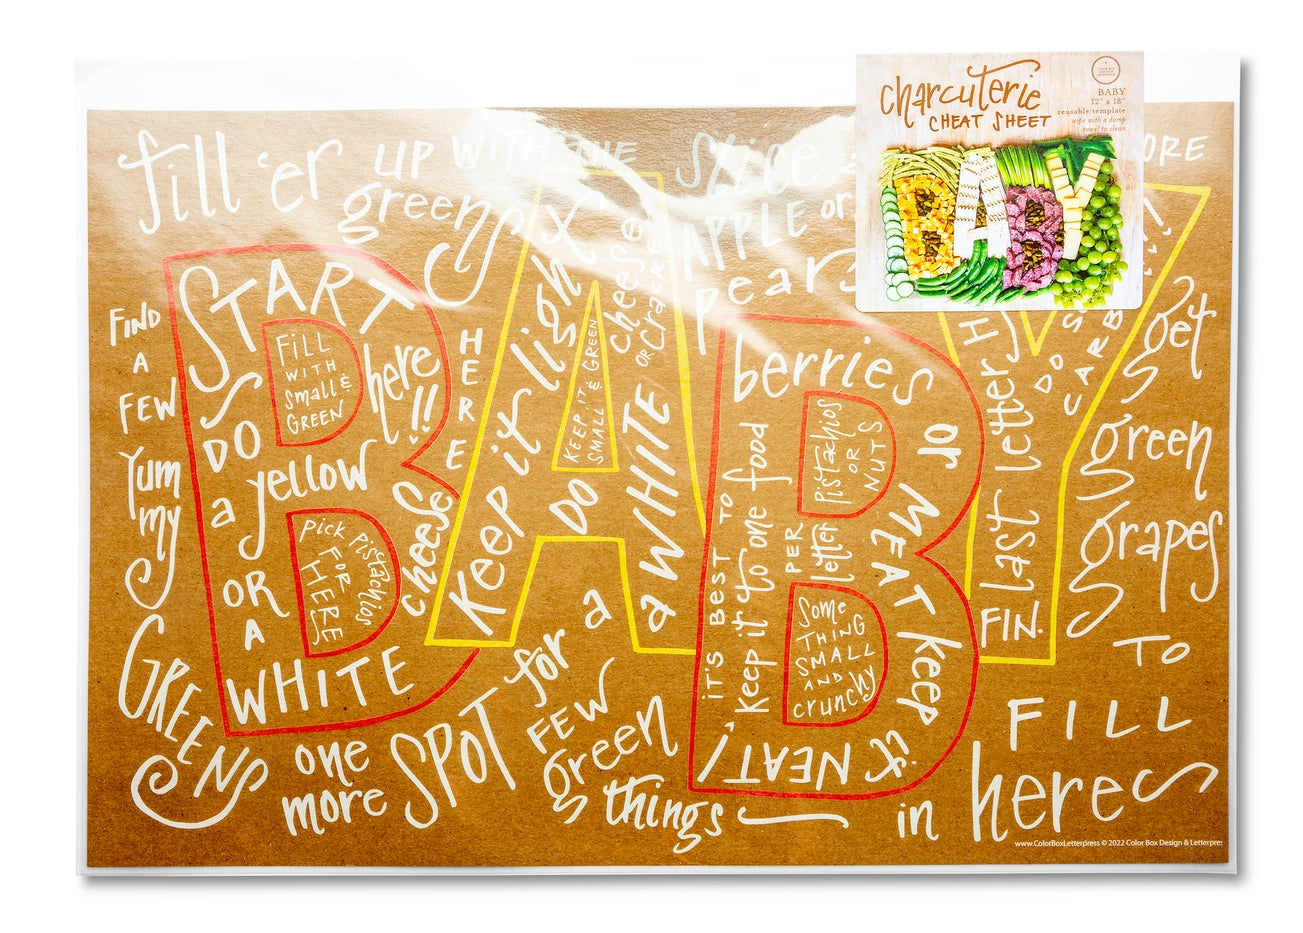 charcuterie
CHEAT SHEET
BABY
12" x 18"
reusable template
wipe with a damp
towel to clean
BABY
fill 'er up WITH THE
green
slice
APPLE or
pears
ORE
FIND
A
FEW
yum
my
GREENS
START
here!!
FILL
WITH
small &
GREEN
DO
a yellow
cheese
OR
A
WHITE
Pick Pistachios
FOR
HERE
HERE
Keep it light
DO
a WHITE
cheese
OR Cracker
KEEP IT
SMALL & GREEN
one
more SPOT for a
FEW
green
things
berries or MEAT keep
it NEAT!
Pistachios
OR
NUTS
IT'S BEST TO
keep it to one food
PER
letter
Some
THING
SMALL
AND
crunchy
last letter
DO
CARB
FIN.
get
green
grapes
TO
FILL
in here
www.ColorBoxLetterpress © 2022 Color Box Design & Letterpres